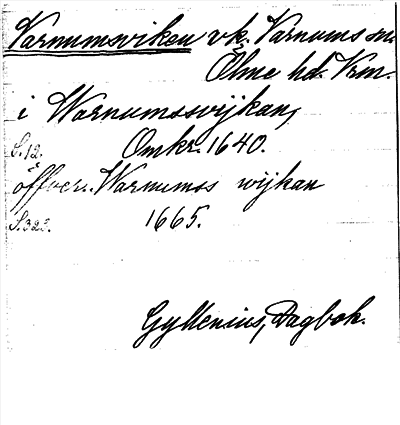 Varnumsviken vk. Varnums sn.
Ölme hd. Vrm.
i Warnumssvijkan,
S. 12. Omkr. 1640.
öffver. Warnumss wijkan
S. 323. 1665.
Gyllenius, Dagbok.